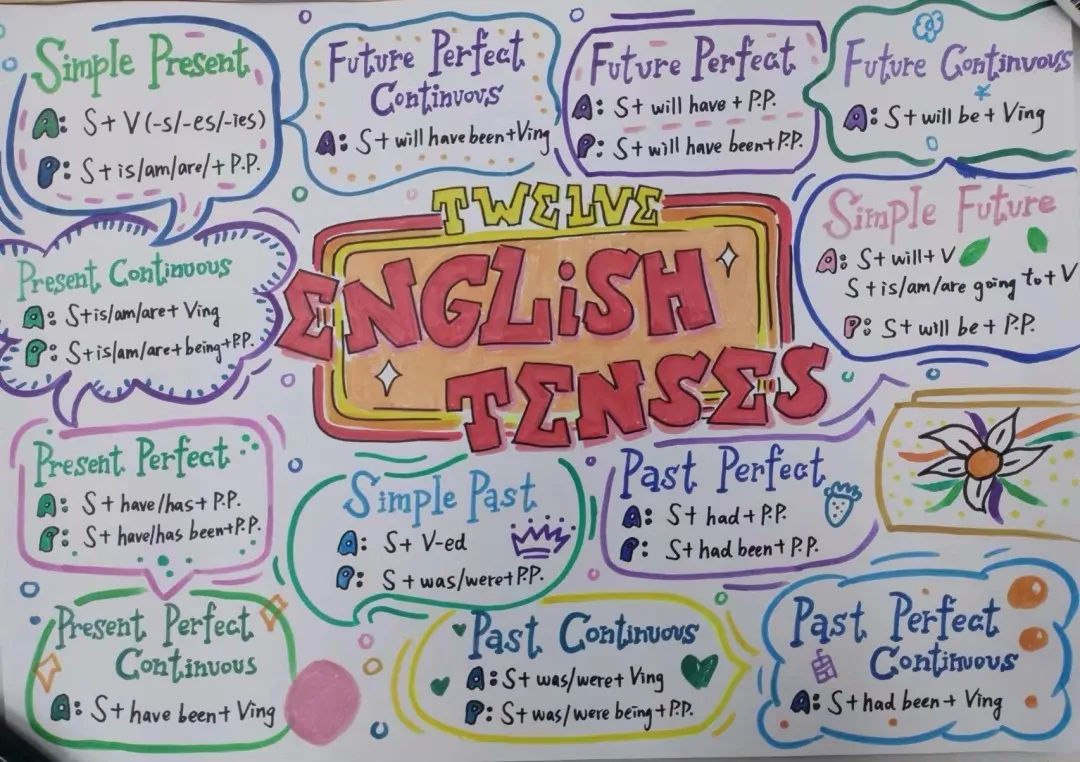 Simple Present
A: S+V(-s/-es/-ies)
P: S+is/am/are/+P.P.
Future Perfect
Continuous
A: S+will have been+Ving
Future Perfect
A: S+will have+P.P.
P: S+will have been+P.P.
Future Continuous
A: S+will be+Ving
TWELVE
ENGLiSH
TENSES
Simple Future
A: S+will+V
S+is/am/are going to+V
P: S+will be+P.P.
Present Continuous
A: S+is/am/are+Ving
P: S+is/am/are+being+P.P.
Present Perfect
A: S+have/has+P.P.
P: S+have/has been+P.P.
Simple Past
A: S+V-ed
P: S+was/were+P.P.
Past Perfect
A: S+had+P.P.
P: S+had been+P.P.
Present Perfect
Continuous
A: S+have been+Ving
Past Continuous
A: S+was/were+Ving
P: S+was/were being+P.P.
Past Perfect
Continuous
A: S+had been+Ving